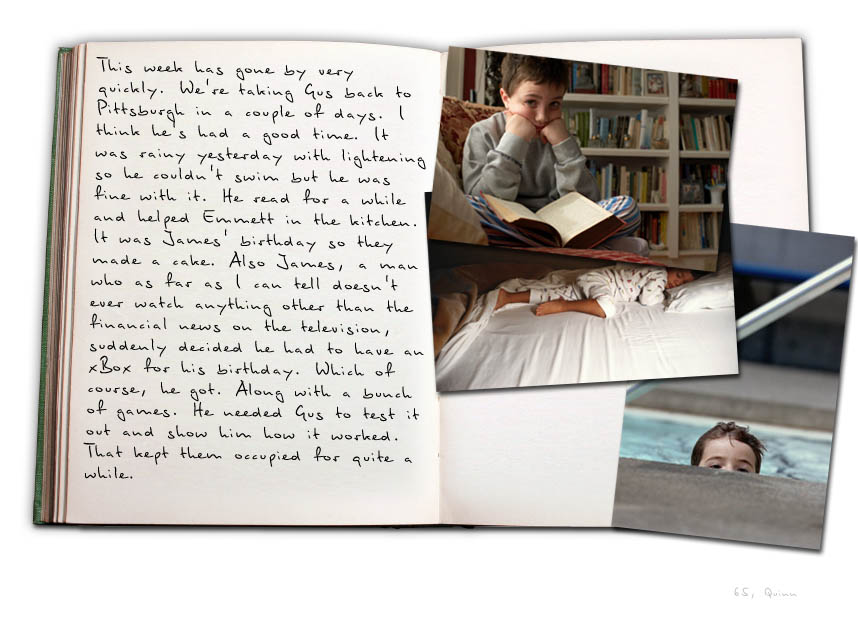 This week has gone by very
quickly. We're taking Gus back to
Pittsburgh in a couple of days. I
think he's had a good time. It
was rainy yesterday with lightening
so he couldn't swim but he was
fine with it. He read for a while
and helped Emmett in the kitchen.
It was James' birthday so they
made a cake. Also James, a man
who as far as I can tell doesn't
ever watch anything other than the
financial news on the television,
suddenly decided he had to have an
xBox for his birthday. Which of
course, he got. Along with a bunch
of games. He needed Gus to test it
out and show him how it worked.
That kept them occupied for quite a
while.
65, Quinn